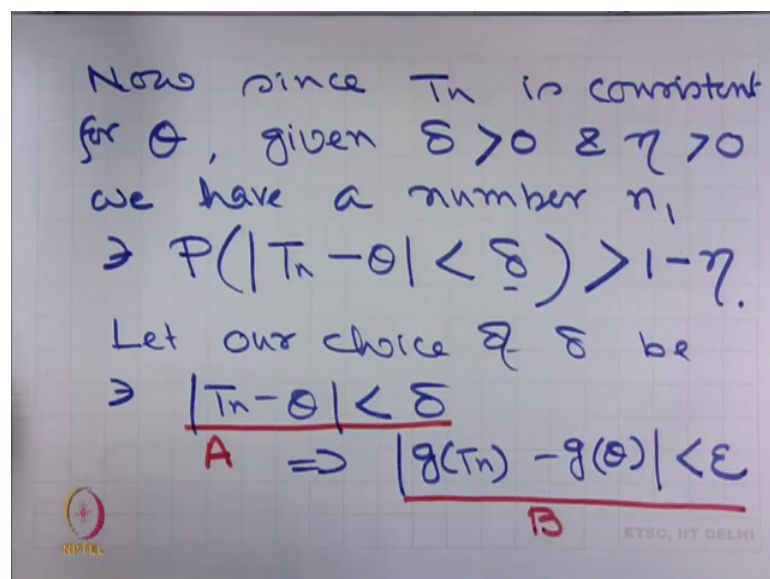 Now since Tn is consistent
for θ, given δ > 0 & η > 0
we have a number n₁
∋ P(|Tn - θ| < δ) > 1 - η.
Let our choice of δ be
∋ |Tn - θ| < δ
A ⇒ |g(Tn) - g(θ)| < ε
B
NPTEL
ETSC, IIT DELHI